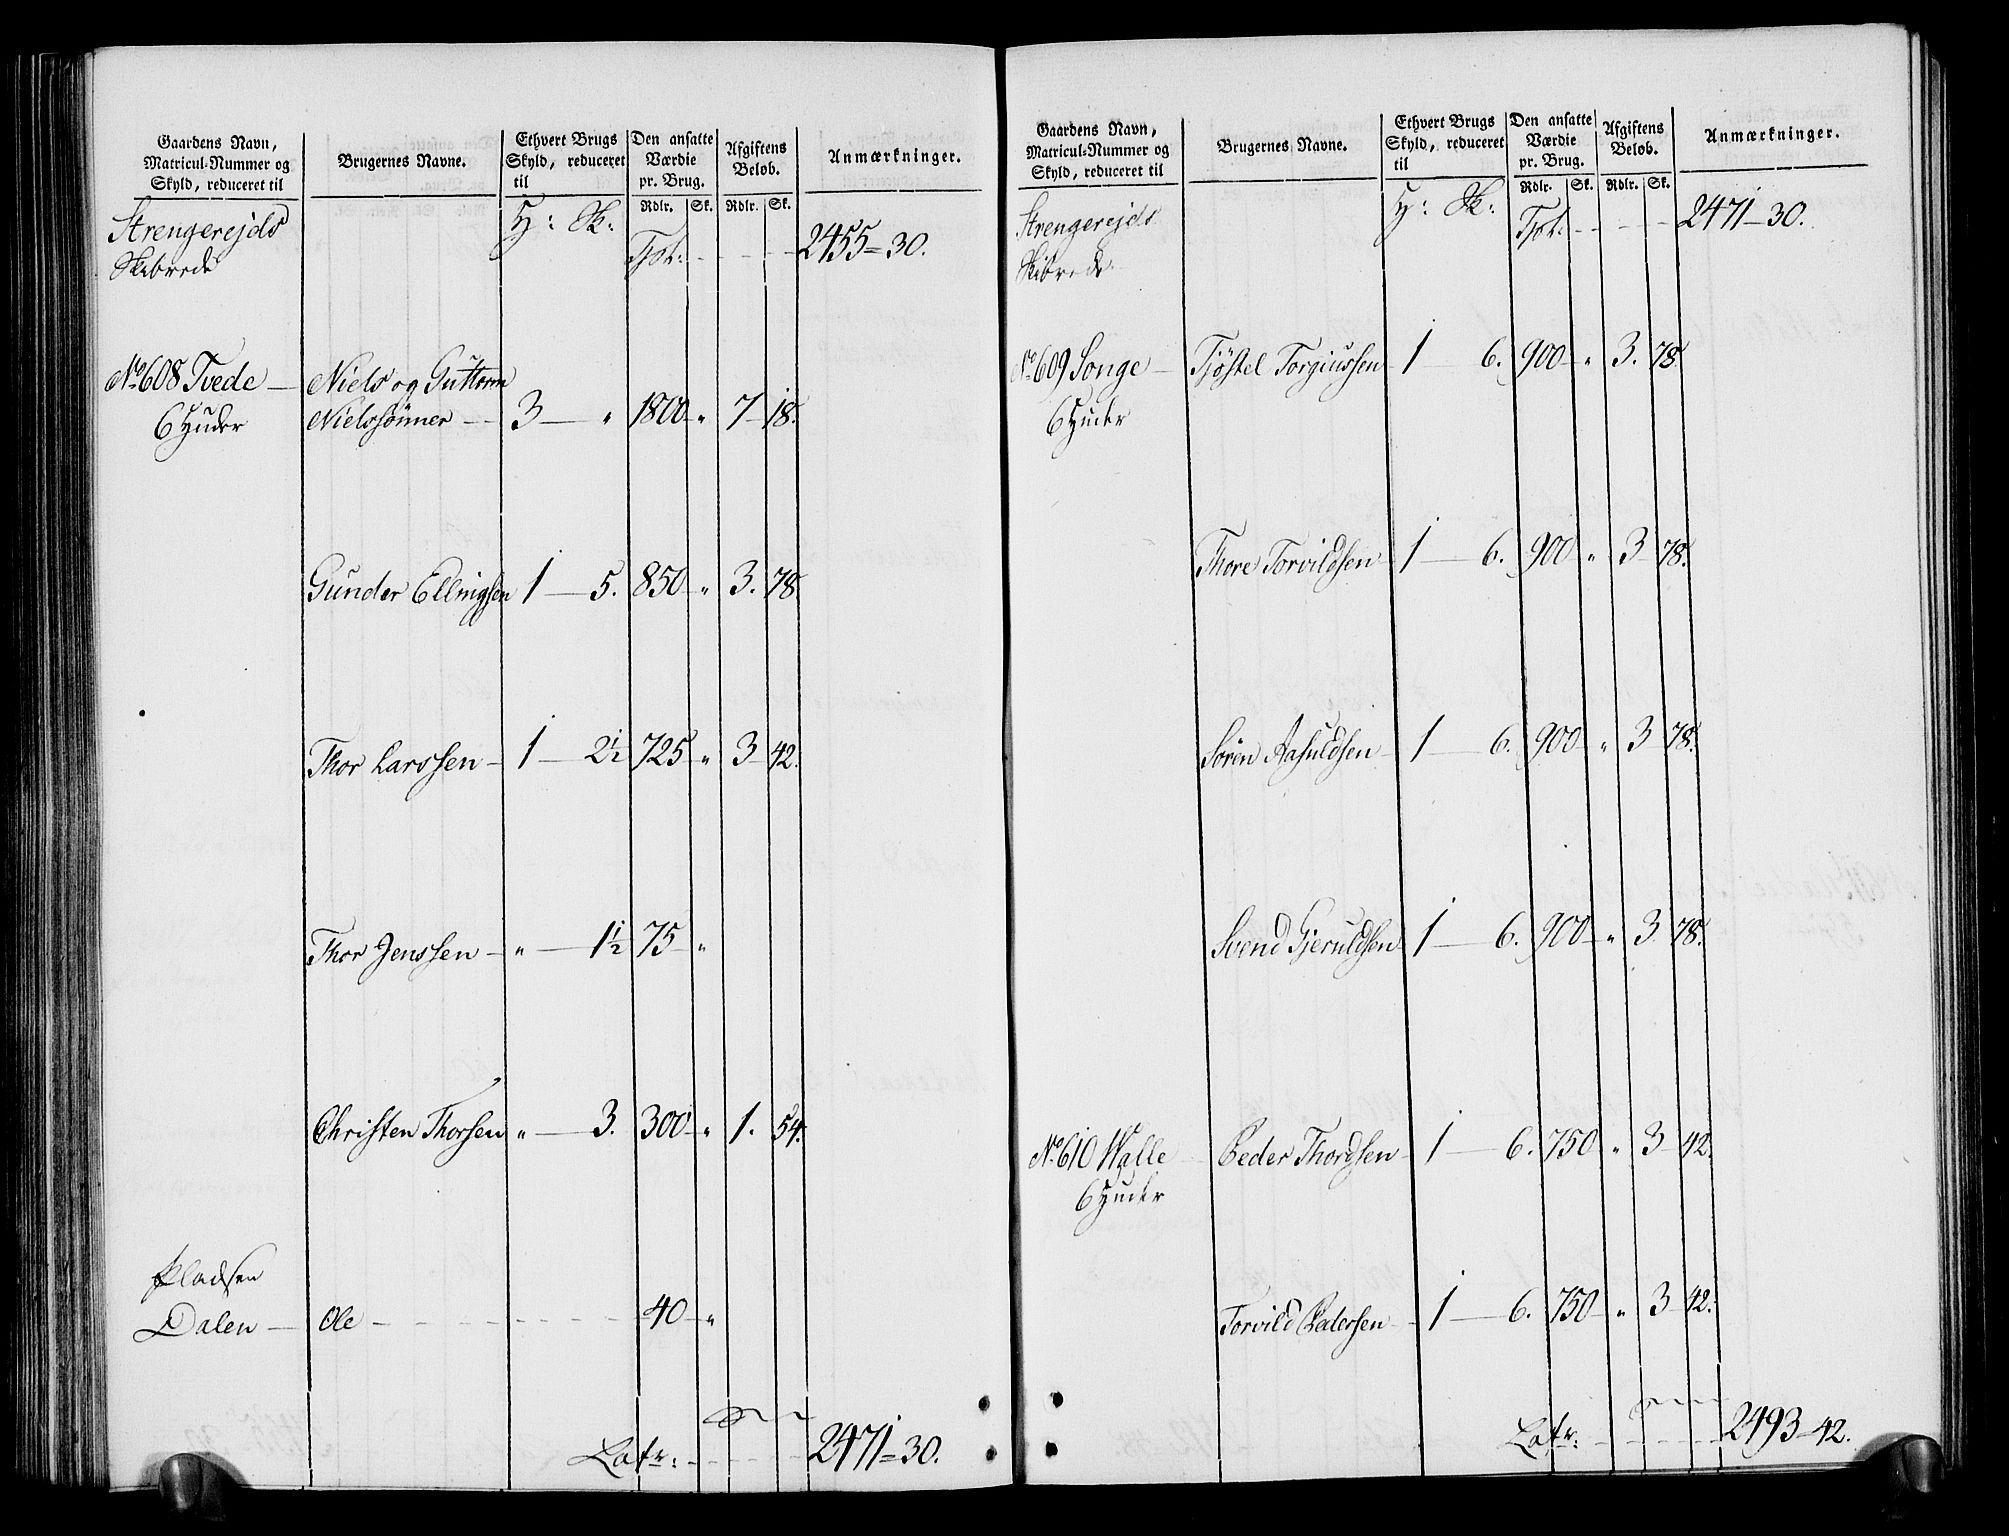 Gaardens Navn, Matricul-Nummer og Skyld, reduceret til | Brugernes Navne. | Ethvert Brugs Skyld, reduceret til | Den ansatte Værdie pr. Brug. | Afgiftens Beløb. | Anmærkninger.
Rdlr. Sk. Rdlr. Sk.
Strengerejds H: Sk:
Skibrede Tspt: 2455=30.
No 608 Tvede — Niels og Guttorm
6 Huder Nielssønner — 3 — " 1800 " 7 18.
Gunder Ellingsen 1 — 5. 850 " 3. 78
Thor Larssen — 1 — 2½ 725 " 3 42.
Thor Jenssen — " — 1½ 75 "
Christen Thorsen " — 3. 300 " 1. 54.
Pladsen
Dalen — Ole 40 "
Latr: 2471=30.
Gaardens Navn, Matricul-Nummer og Skyld, reduceret til | Brugernes Navne. | Ethvert Brugs Skyld, reduceret til | Den ansatte Værdie pr. Brug. | Afgiftens Beløb. | Anmærkninger.
Rdlr. Sk. Rdlr. Sk.
Strengerejds H: Sk: Tspt. 2471-30.
Skibrede
No 609 Songe — Tjøstel Torgiussen 1 — 6. 900 " 3. 78
6 Huder
Thore Torvildsen 1 — 6. 900 " 3 78.
Søren Aasuldsen 1 — 6. 900 " 3 78.
Svend Gjeruldsen 1 — 6. 900 " 3 78.
No 610 Walle Peder Thordsen 1 — 6. 750 " 3 42.
6 Huder
Torvild Pedersen 1 — 6. 750 " 3 42.
Latr: 2493-42.